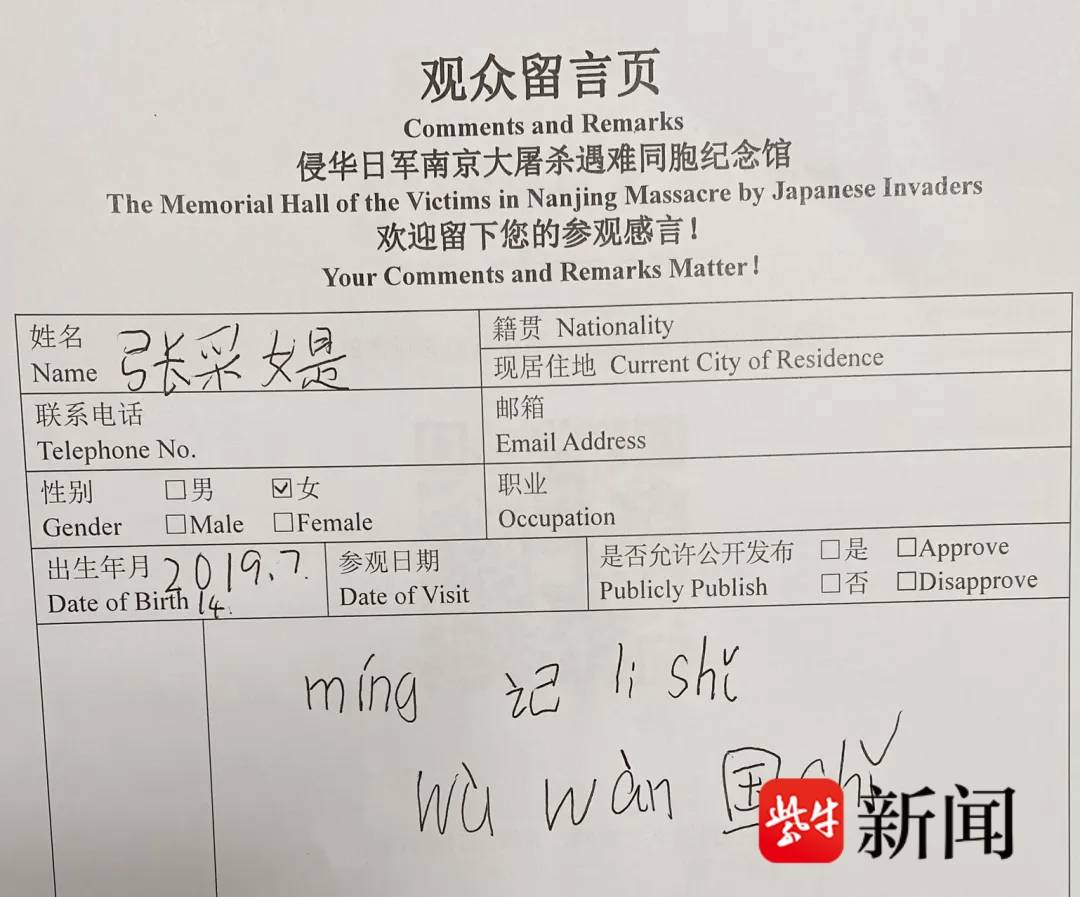 观众留言页
Comments and Remarks
侵华日军南京大屠杀遇难同胞纪念馆
The Memorial Hall of the Victims in Nanjing Massacre by Japanese Invaders
欢迎留下您的参观感言！
Your Comments and Remarks Matter！
姓名 张采媞
Name
籍贯 Nationality
现居住地 Current City of Residence
联系电话
Telephone No.
邮箱
Email Address
性别 □男 ☑女
Gender □Male □Female
职业
Occupation
出生年月 2019.7.
Date of Birth 14.
参观日期
Date of Visit
是否允许公开发布 □是 □Approve
Publicly Publish □否 □Disapprove
míng 记 li shǐ
wù wàn 国 chǐ
紫牛新闻